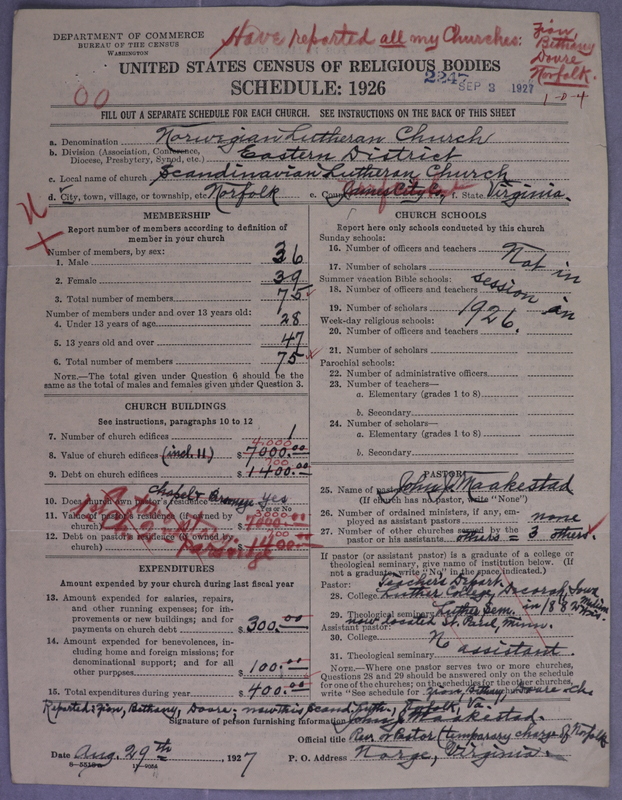 DEPARTMENT OF COMMERCE
BUREAU OF THE CENSUS
WASHINGTON
Have reported all my Churches: Zion, Bethany Doure Norfolk.
1-D-4
UNITED STATES CENSUS OF RELIGIOUS BODIES
SCHEDULE: 1926
2247
SEP 3 1927
00
FILL OUT A SEPARATE SCHEDULE FOR EACH CHURCH. SEE INSTRUCTIONS ON THE BACK OF THIS SHEET
a. Denomination Norwegian Lutheran Church
b. Division (Association, Conference, Diocese, Presbytery, Synod, etc.) Eastern District
c. Local name of church Scandinavian Lutheran Church
d. City, town, village, or township, etc. Norfolk e. County James City Co. f. State Virginia.
MEMBERSHIP
Report number of members according to definition of
member in your church
Number of members, by sex:
1. Male 36
2. Female 39
3. Total number of members 75
Number of members under and over 13 years old:
4. Under 13 years of age 28
5. 13 years old and over 47
6. Total number of members 75
NOTE.—The total given under Question 6 should be
same as the total of males and females given under Question 3.
CHURCH BUILDINGS
See instructions, paragraphs 10 to 12
7. Number of church edifices 1
8. Value of church edifices (incl. 11) $ 7000.00
4,000
9. Debt on church edifices $ 1400.00
700
chapel & parsonage
10. Does church own pastor's residence yes
Yes or No
11. Value of pastor's residence (if owned by
church) $
3,000.00
12. Debt on pastor's residence (if owned by
church) $ 1400.00
EXPENDITURES
Amount expended by your church during last fiscal year
13. Amount expended for salaries, repairs,
and other running expenses; for im-
provements or new buildings; and for
payments on church debt $ 300.00
14. Amount expended for benevolences,
including home and foreign missions; for
denominational support; and for all
other purposes $ 100.00
15. Total expenditures during year $ 400.00
CHURCH SCHOOLS
Report here only schools conducted by this church
Sunday schools:
16. Number of officers and teachers
17. Number of scholars
Summer vacation Bible schools:
18. Number of officers and teachers
19. Number of scholars
Week-day religious schools:
20. Number of officers and teachers
21. Number of scholars
Not in session in 1926.
Parochial schools:
22. Number of administrative officers
23. Number of teachers—
a. Elementary (grades 1 to 8)
b. Secondary
24. Number of scholars—
a. Elementary (grades 1 to 8)
b. Secondary
PASTOR
25. Name of pastor John J. Maakestad
(If church has no pastor, write "None")
26. Number of ordained ministers, if any, em-
ployed as assistant pastors none
27. Number of other churches served by the
pastor or his assistants others = 3 others.
If pastor (or assistant pastor) is a graduate of a college or
theological seminary, give name of institution below. (If
not a graduate, write "No" in the space indicated.)
Pastor: Teachers Depart.
28. College Luther College, Decorah, Iowa
29. Theological seminary Luther Sem. in 188
now located St. Paul, Minn.
Assistant pastor:
30. College No
31. Theological seminary assistant.
NOTE.—Where one pastor serves two or more churches,
Questions 28 and 29 should be answered only on the schedule
for one of the churches; on the schedules for the other churches,
write "See schedule for Zion, Bethany, Doure chs
Reported: Zion, Bethany, Doure; now this Scand. Luth., Norfolk, Va.
Signature of person furnishing information John J. Maakestad.
Official title Rev. & Pastor (temporary charge of Norfolk
Date Aug. 29th, 1927 P. O. Address Norge, Virginia.